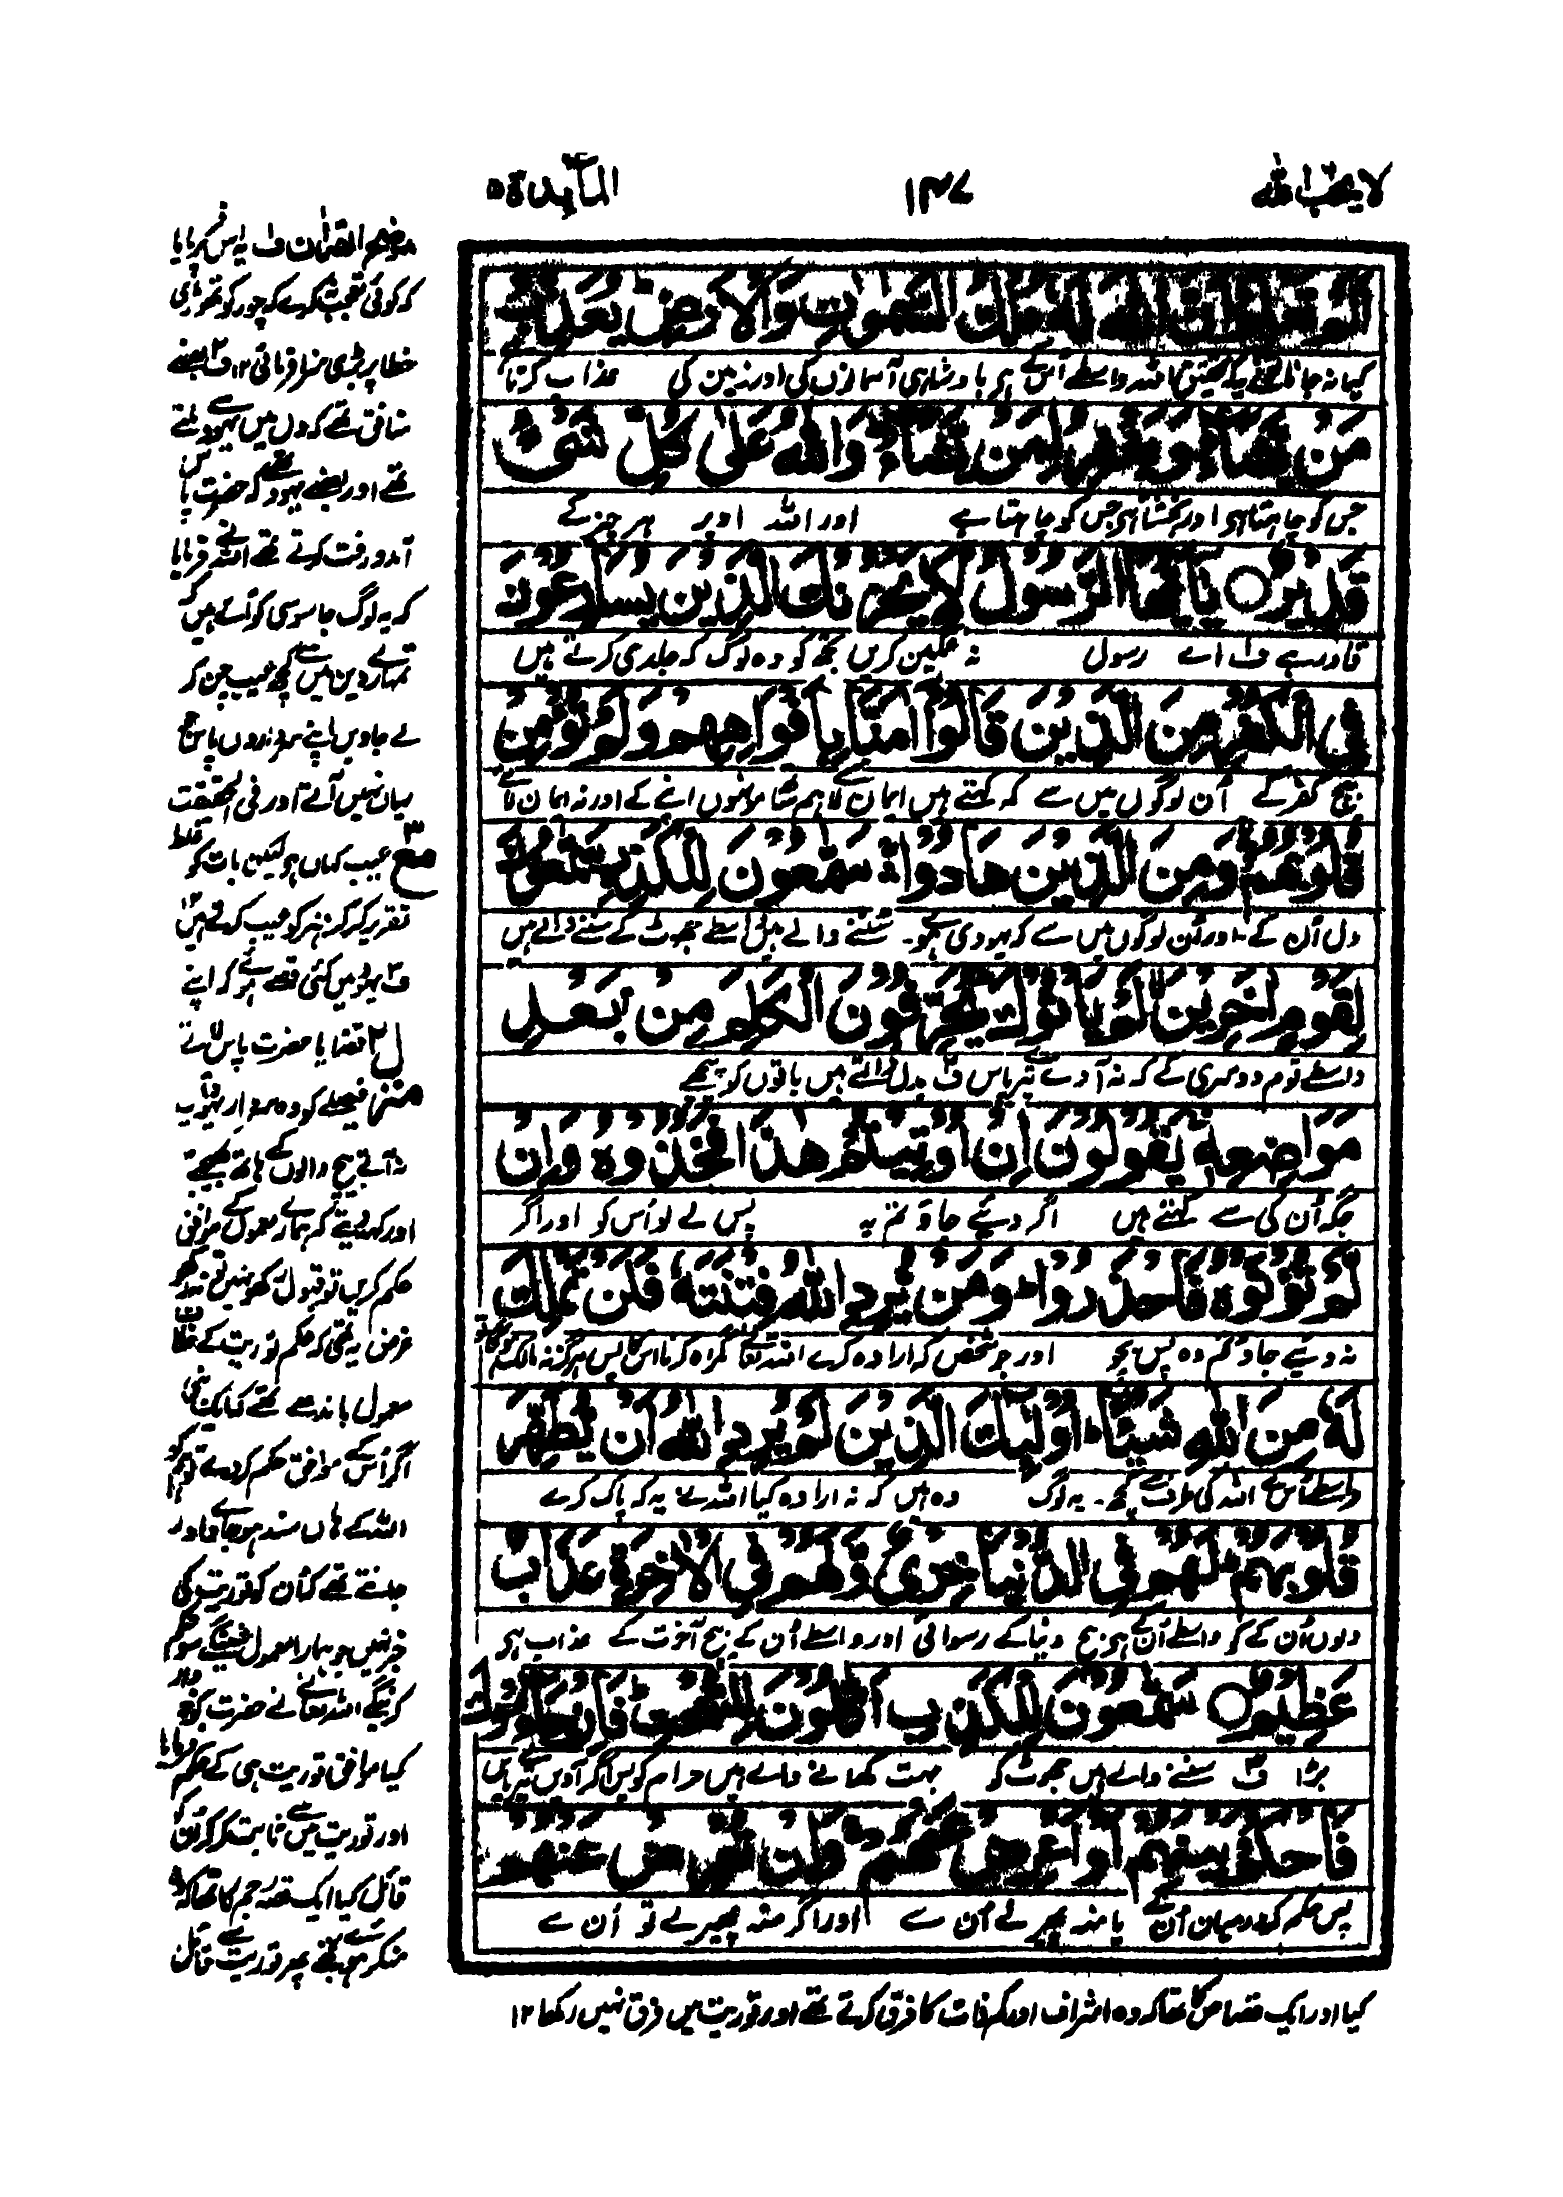 لا یحب الله ۱۴۷ المآئدة ۵
اَلَمْ تَعْلَمْ اَنَّ اللّٰهَ لَهٗ مُلْكُ السَّمٰوٰتِ وَالْاَرْضِ یُعَذِّبُ
کیا نہ جانا تونے یہ کہ تحقیق اللہ واسطے اُس کے ہی بادشاہی آسمانوں کی اور زمین کی عذاب کرتا ہے
مَنْ یَّشَآءُ وَیَغْفِرُ لِمَنْ یَّشَآءُ وَاللّٰهُ عَلٰی كُلِّ شَیْءٍ
جس کو چاہتا ہی اور بخشتا ہی جس کو چاہتا ہے اور اللہ اوپر ہر چیز کے
قَدِیْرٌ ○ یٰۤاَیُّهَا الرَّسُوْلُ لَا یَحْزُنْكَ الَّذِیْنَ یُسَارِعُوْنَ
قادر ہے ف۱ اے رسول نہ غمگین کریں تجھ کو وہ لوگ کہ جلدی کرتے ہیں
فِی الْكُفْرِ مِنَ الَّذِیْنَ قَالُوْۤا اٰمَنَّا بِاَفْوَاهِهِمْ وَلَمْ تُؤْمِنْ
بیچ کفر کے اُن لوگوں میں سے کہ کہتے ہیں ایمان لائے ہم ساتھ مونہوں اپنے کے اور نہ ایمان لائے
قُلُوْبُهُمْ وَمِنَ الَّذِیْنَ هَادُوْا سَمّٰعُوْنَ لِلْكَذِبِ سَمّٰعُوْنَ
دل اُن کے۔ اور اُن لوگوں میں سے کہ یہودی ہوئے۔ سننے والے ہیں واسطے جھوٹ کے سننے والے ہیں
لِقَوْمٍ اٰخَرِیْنَ لَمْ یَاْتُوْكَ یُحَرِّفُوْنَ الْكَلِمَ مِنْ بَعْدِ
واسطے قوم دوسری کے کہ نہ آوے تیرے پاس ف۲ بدل ڈالتے ہیں باتوں کو پیچھے
مَوَاضِعِهٖ یَقُوْلُوْنَ اِنْ اُوْتِیْتُمْ هٰذَا فَخُذُوْهُ وَاِنْ
جگہ اُن کی سے کہتے ہیں اگر دیئے جاؤ تم یہ پس لے لو اُس کو اور اگر
لَّمْ تُؤْتَوْهُ فَاحْذَرُوْا وَمَنْ یُّرِدِ اللّٰهُ فِتْنَتَهٗ فَلَنْ تَمْلِكَ
نہ دیئے جاؤ تم وہ پس بچو اور جو شخص کہ ارادہ کرے اللہ تعالےٰ گمراہ کرنا اس کا پس ہرگز نہ مالک ہوگا تو
لَهٗ مِنَ اللّٰهِ شَیْـًٔا اُولٰٓئِكَ الَّذِیْنَ لَمْ یُرِدِ اللّٰهُ اَنْ یُّطَهِّرَ
واسطے اُس کے اللہ کی طرف سے کچھ۔ یہ لوگ وہ ہیں کہ نہ ارادہ کیا اللہ نے یہ کہ پاک کرے
قُلُوْبَهُمْ لَهُمْ فِی الدُّنْیَا خِزْیٌ وَّلَهُمْ فِی الْاٰخِرَةِ عَذَابٌ
دلوں اُن کے کو واسطے اُن کے ہی بیچ دنیا کے رسوائی اور واسطے اُن کے بیچ آخرت کے عذاب ہی
عَظِیْمٌ ○ سَمّٰعُوْنَ لِلْكَذِبِ اَكّٰلُوْنَ لِلسُّحْتِ فَاِنْ جَآءُوْكَ
بڑا ف۳ سننے والے ہیں جھوٹ کو بہت کھانے والے ہیں حرام کو پس اگر آویں تیرے پاس
فَاحْكُمْ بَیْنَهُمْ اَوْ اَعْرِضْ عَنْهُمْ وَاِنْ تُعْرِضْ عَنْهُمْ
پس حکم کر درمیان اُن کے یا منہ پھیر لے اُن سے اور اگر منہ پھیر لے تو اُن سے
موضح القرآن ف۱ یہ اس پر فرمایا
کہ کوئی تعجب نہ کرے کہ چور کو تھوڑی
خطا پر بڑی سزا فرمائی ۱۲ ف۲ بعضے
منافق تھے کہ دل میں یہود سے ملتے
تھے اور بعضے یہود تھے کہ حضرت پاس
آمدورفت کرتے تھے اللہ نے فرمایا
کہ یہ لوگ جاسوسی کو آتے ہیں کہ
تمہارے دین میں سے کچھ عیب چن کر
لے جاویں اپنے سرداروں پاس جو
یہاں نہیں آتے اور فی الحقیقت
عیب کہاں ہی لیکن بات کو غلط
تقریر کر کر ہنر کو عیب کرتے ہیں
ف۳ یہود میں کئی قصے ہوئے کہ اپنے
قضایا حضرت پاس لائے
فیصلے کو وہ سردار یہود آپ
نہ آتے بیچ والوں کے ہاتھ بھیجتے
اور کہہ دیتے کہ ہمارے معمول کے موافق
حکم کریں تو قبول رکھو نہیں تو نہ رکھو
غرض یہ تھی کہ حکم توریت کے خلاف
معمول باندھے تھے
اگر اُس کے موافق حکم کر دے تو ہم کو
اللہ کے ہاں سند ہو جاوے اور
جانتے تھے کہ اُن کو توریت کی
خبر نہیں جو ہمارا معمول سنیں گے سو حکم
کریں گے اللہ تعالےٰ نے حضرت کو خبردار
کیا موافق توریت ہی کے حکم فرمایا
اور توریت میں سے ثابت کر کر اُن کو
قائل کیا ایک قصہ رجم کا تھا کہ وہ
منکر ہوئے تھے پھر توریت سے قائل
کیا اور ایک قصاص کا تھا کہ وہ اشراف اور کم ذات کا فرق کرتے تھے اور توریت میں فرق نہیں رکھا ۱۲